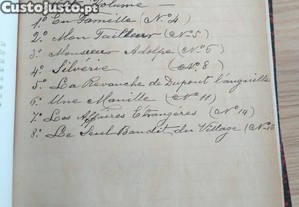 CustoJusto.pt
Volume —
1.º En Famille (Nº 4)
2.º Mon Tailleur (Nº 5)
3.º Monsieur Adolphe (Nº 6)
4.º Silvérie (Nº 8)
5.º La Revanche de Dupont l'anguille
6.º Une Manille (Nº 11)
7.º Les Affaires Etrangères (Nº 14)
8.º Le Seul Bandit du Village (Nº